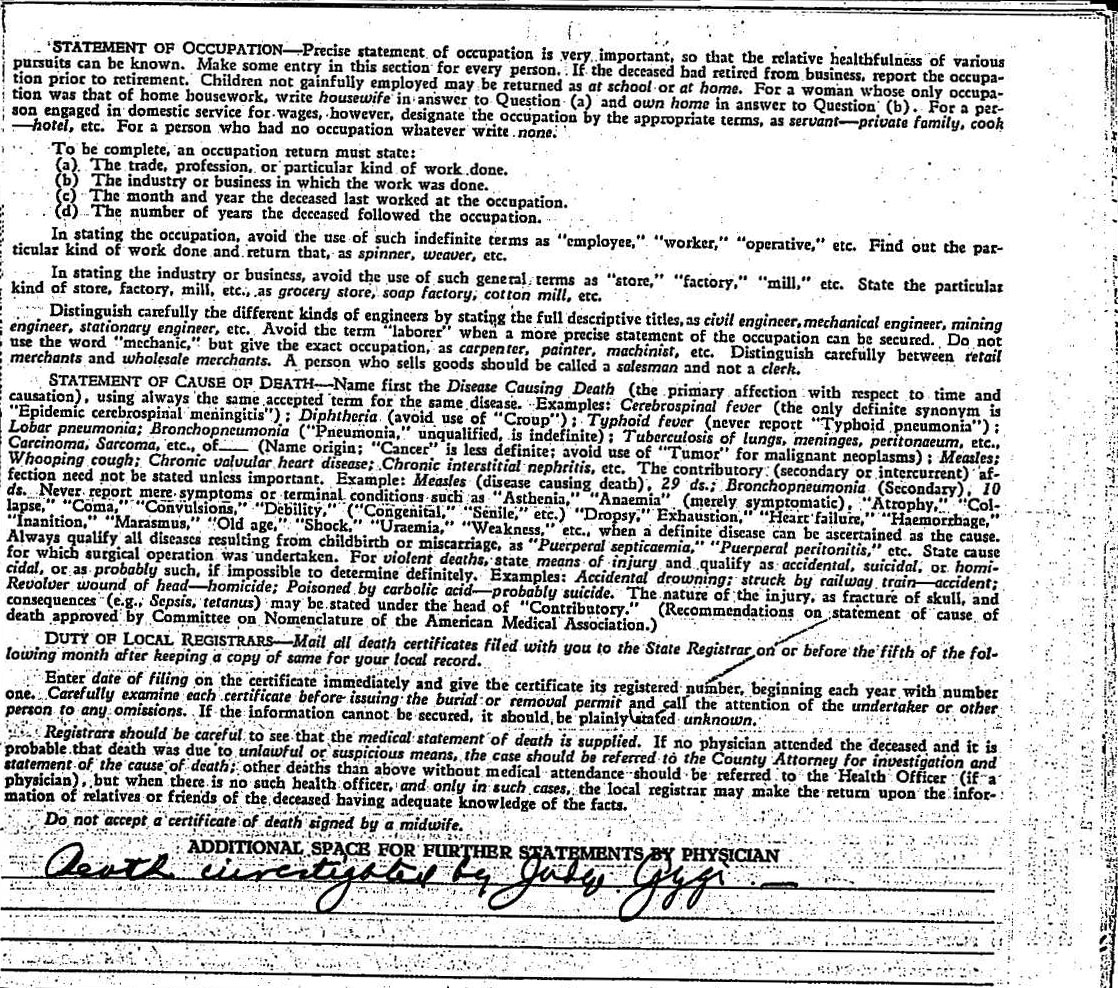 STATEMENT OF OCCUPATION—Precise statement of occupation is very important, so that the relative healthfulness of various
pursuits can be known. Make some entry in this section for every person. If the deceased had retired from business, report the occupa-
tion prior to retirement. Children not gainfully employed may be returned as at school or at home. For a woman whose only occupa-
tion was that of home housework, write housewife in answer to Question (a) and own home in answer to Question (b). For a per-
son engaged in domestic service for wages, however, designate the occupation by the appropriate terms, as servant—private family, cook
—hotel, etc. For a person who had no occupation whatever write none.
To be complete, an occupation return must state:
(a) The trade, profession, or particular kind of work done.
(b) The industry or business in which the work was done.
(c) The month and year the deceased last worked at the occupation.
(d) The number of years the deceased followed the occupation.
In stating the occupation, avoid the use of such indefinite terms as "employee," "worker," "operative," etc. Find out the par-
ticular kind of work done and return that, as spinner, weaver, etc.
In stating the industry or business, avoid the use of such general terms as "store," "factory," "mill," etc. State the particular
kind of store, factory, mill, etc., as grocery store, soap factory, cotton mill, etc.
Distinguish carefully the different kinds of engineers by stating the full descriptive titles, as civil engineer, mechanical engineer, mining
engineer, stationary engineer, etc. Avoid the term "laborer" when a more precise statement of the occupation can be secured. Do not
use the word "mechanic," but give the exact occupation, as carpenter, painter, machinist, etc. Distinguish carefully between retail
merchants and wholesale merchants. A person who sells goods should be called a salesman and not a clerk.
STATEMENT OF CAUSE OF DEATH—Name first the Disease Causing Death (the primary affection with respect to time and
causation), using always the same accepted term for the same disease. Examples: Cerebrospinal fever (the only definite synonym is
"Epidemic cerebrospinal meningitis"); Diphtheria (avoid use of "Croup"); Typhoid fever (never report "Typhoid pneumonia");
Lobar pneumonia; Bronchopneumonia ("Pneumonia," unqualified, is indefinite); Tuberculosis of lungs, meninges, peritonaeum, etc.,
Carcinoma, Sarcoma, etc., of—— (Name origin; "Cancer" is less definite; avoid use of "Tumor" for malignant neoplasms); Measles;
Whooping cough; Chronic valvular heart disease; Chronic interstitial nephritis, etc. The contributory (secondary or intercurrent) af-
fection need not be stated unless important. Example: Measles (disease causing death), 29 ds.; Bronchopneumonia (Secondary), 10
ds. Never report mere symptoms or terminal conditions such as "Asthenia," "Anaemia" (merely symptomatic), "Atrophy," "Col-
lapse," "Coma," "Convulsions," "Debility," ("Congenital," "Senile," etc.) "Dropsy," Exhaustion," "Heart failure," "Haemorrhage,"
"Inanition," "Marasmus," "Old age," "Shock," "Uraemia," "Weakness," etc., when a definite disease can be ascertained as the cause.
Always qualify all diseases resulting from childbirth or miscarriage, as "Puerperal septicaemia," "Puerperal peritonitis," etc. State cause
for which surgical operation was undertaken. For violent deaths, state means of injury and qualify as accidental, suicidal, or homi-
cidal, or as probably such, if impossible to determine definitely. Examples: Accidental drowning; struck by railway train—accident;
Revolver wound of head—homicide; Poisoned by carbolic acid—probably suicide. The nature of the injury, as fracture of skull, and
consequences (e.g., Sepsis, tetanus) may be stated under the head of "Contributory." (Recommendations on statement of cause of
death approved by Committee on Nomenclature of the American Medical Association.)
DUTY OF LOCAL REGISTRARS—Mail all death certificates filed with you to the State Registrar on or before the fifth of the fol-
lowing month after keeping a copy of same for your local record.
Enter date of filing on the certificate immediately and give the certificate its registered number, beginning each year with number
one. Carefully examine each certificate before issuing the burial or removal permit and call the attention of the undertaker or other
person to any omissions. If the information cannot be secured, it should be plainly stated unknown.
Registrars should be careful to see that the medical statement of death is supplied. If no physician attended the deceased and it is
probable that death was due to unlawful or suspicious means, the case should be referred to the County Attorney for investigation and
statement of the cause of death; other deaths than above without medical attendance should be referred to the Health Officer (if a
physician), but when there is no such health officer, and only in such cases, the local registrar may make the return upon the infor-
mation of relatives or friends of the deceased having adequate knowledge of the facts.
Do not accept a certificate of death signed by a midwife.
ADDITIONAL SPACE FOR FURTHER STATEMENTS BY PHYSICIAN
Death investigated by Judge